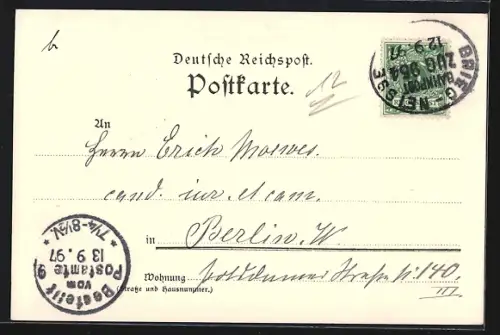 b
Deutsche Reichspost.
Postkarte.
12
BRIEG - NEISSE
BAHNPOST
ZUG 964
12 9. 97
An
Herrn Erich
cand. iur. et cam.
in Berlin. W.
Wohnung Potsdamer Straße N: 140.
(Straße und Hausnummer.)
III
Bestellt
vom
Postamte 9
13 9. 97
* 7¼-8½V. *